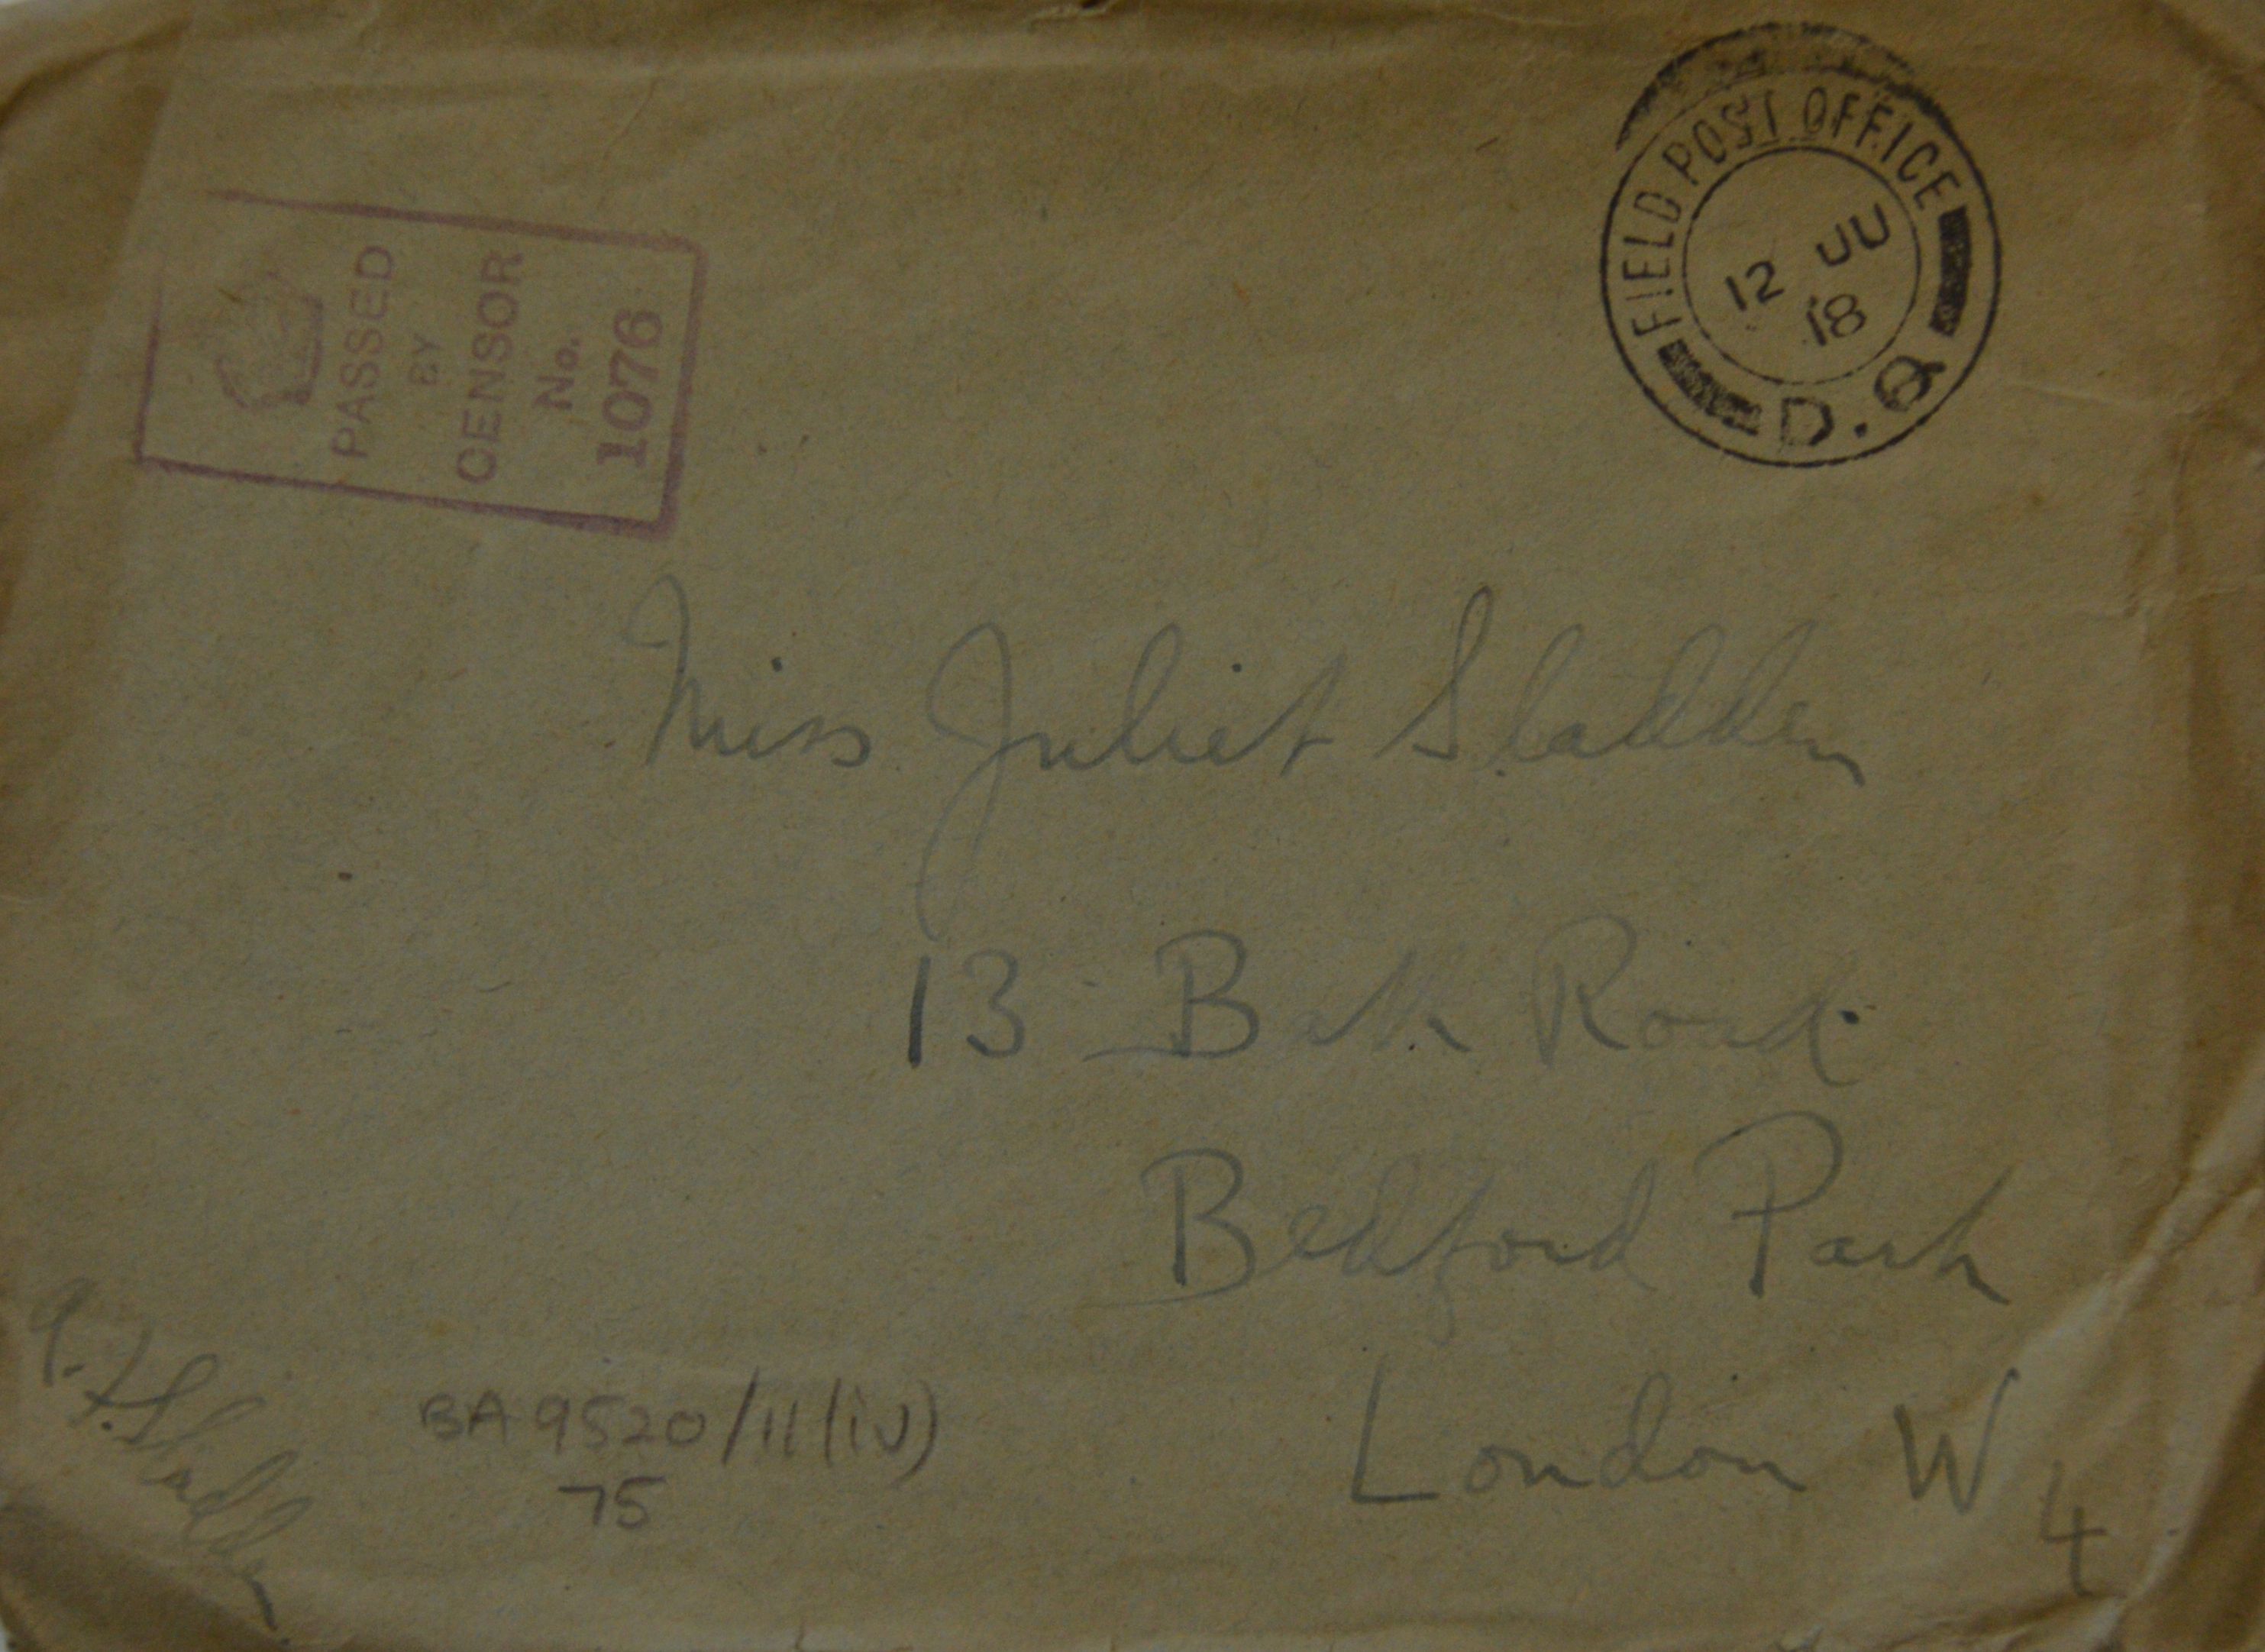 PASSED
BY
CENSOR
No.
1076
FIELD POST OFFICE
12 JU
18
D.Q
Miss Juliet Sladden
13 Bath Road.
Bedford Park
London W 4
Sladden
BA 9520/11(iv)
75